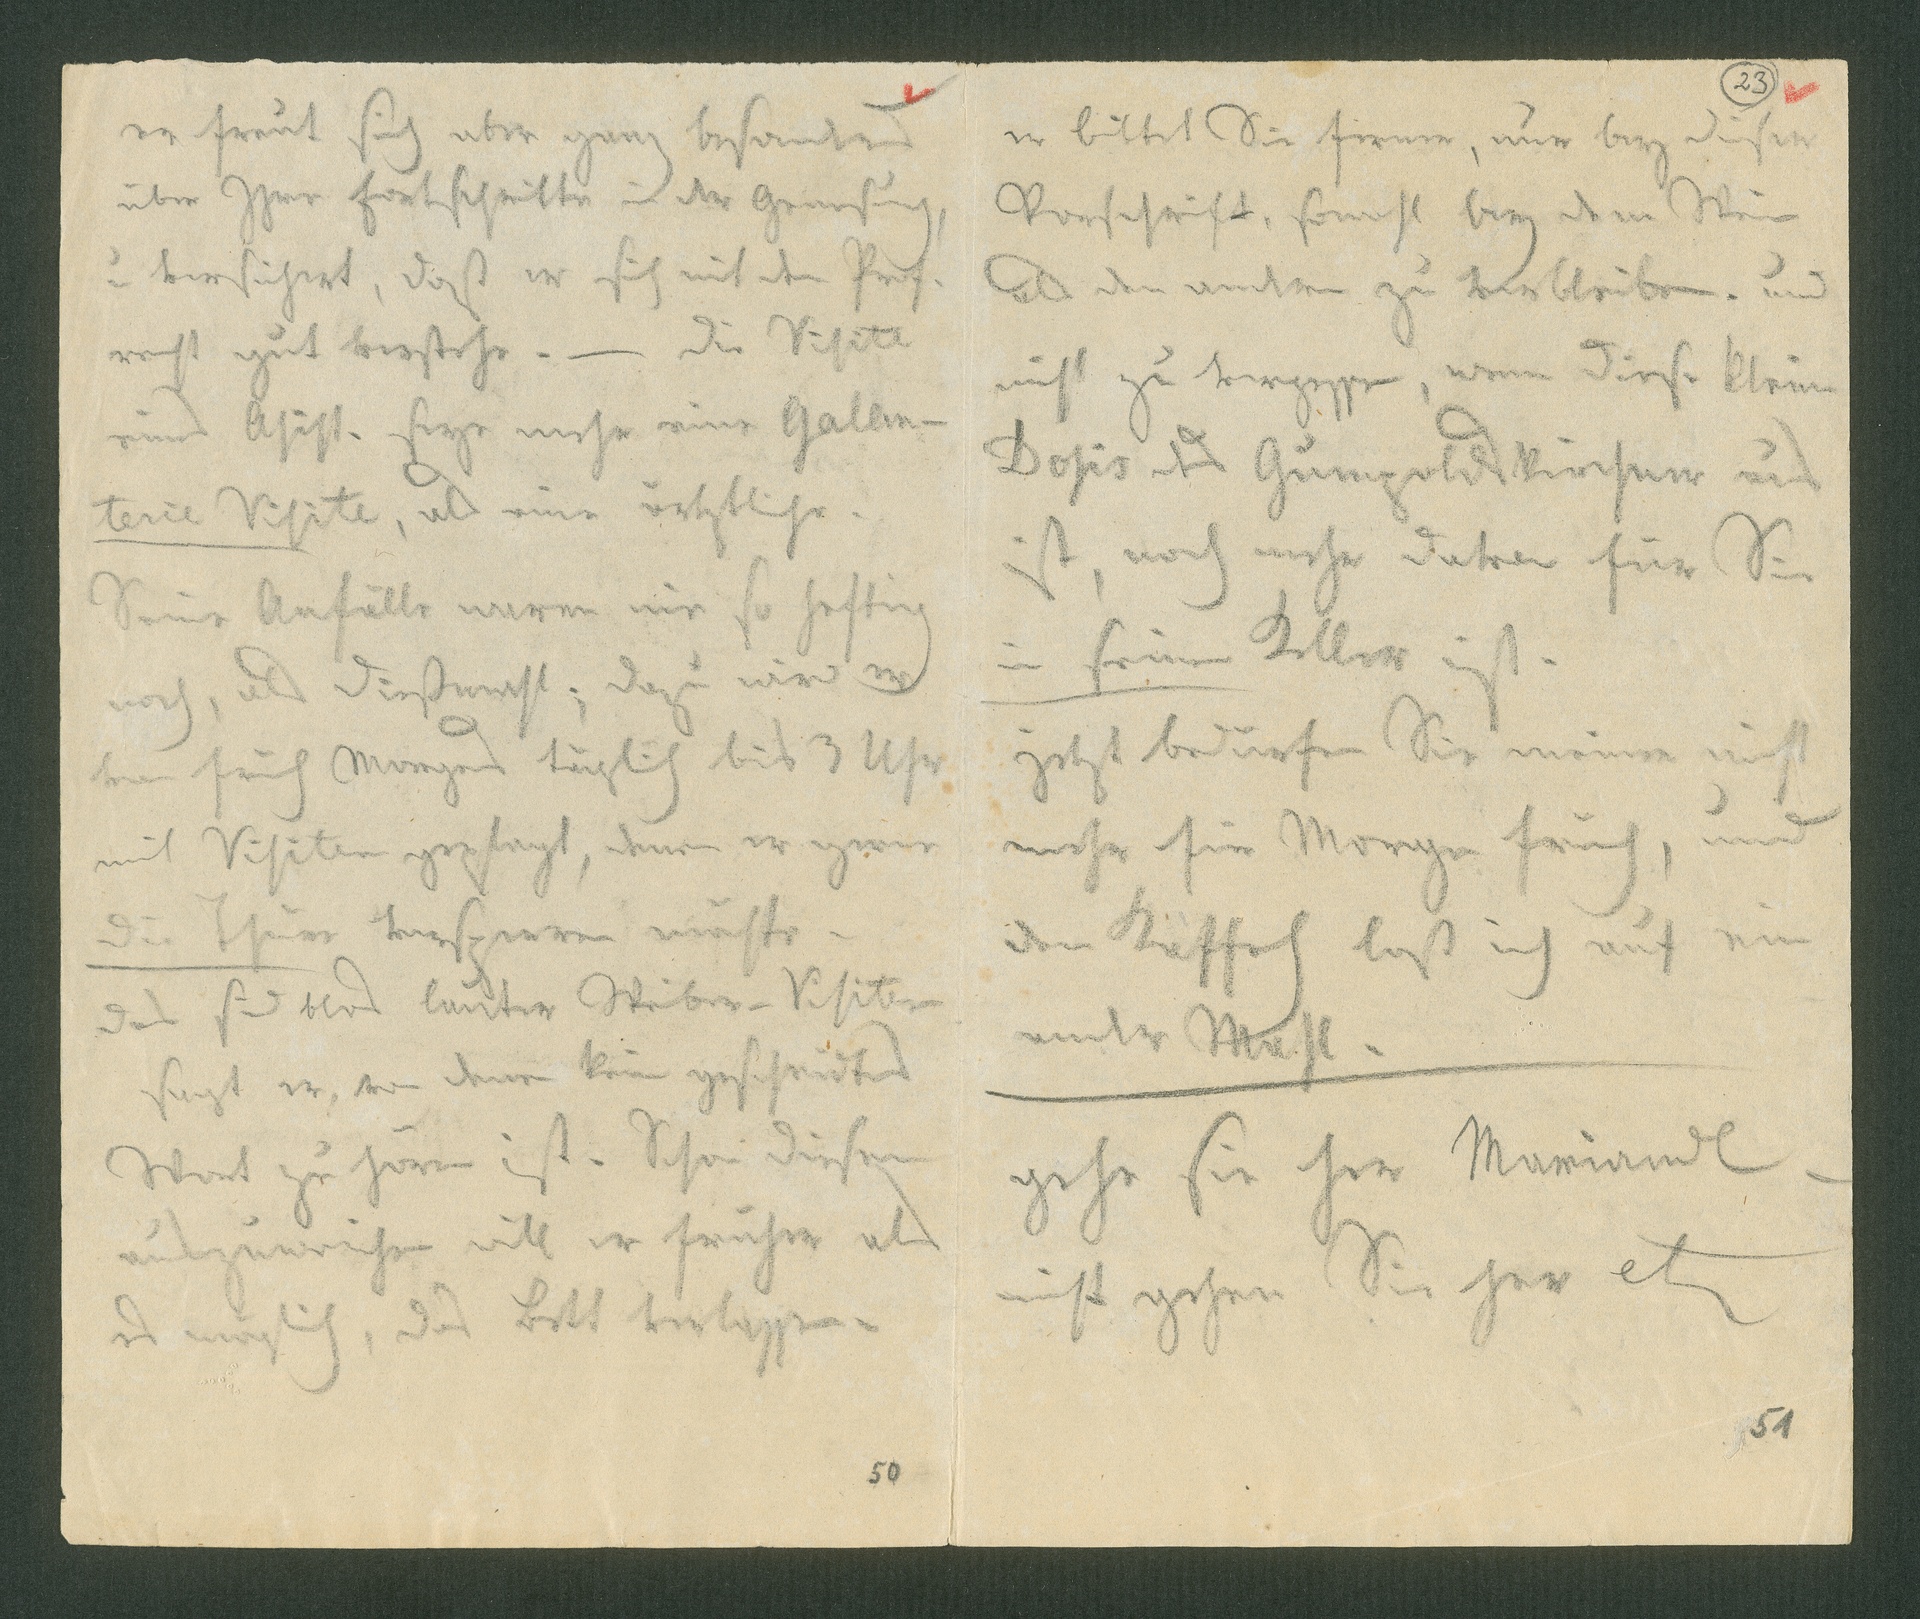 er freut sich aber ganz besonders
über Ihre Fortschritte in der Genesung,
u versichert, daß er sich mit den Prof.
recht gut verstehe. — die Visite
eines Assist. seye mehr eine Gallan-
terie Visite, als eine ärtztliche.
Seine Anfälle waren nie so heftig
noch, als dießmahl; dazu wird er
von früh Morgens täglich bis 3 Uhr
mit Visiten geplagt, denen er gerne
die Thüre versperren möchte.
das sind blos lauter Weiber-Visiten
sagt er, von denen kein gescheidtes
Wort zu hören ist. Schon diesen
auszuweichen will er früher als
es möglich, das Bett verlassen.
50
23
er bittet Sie ferner, nur bey dieser
Vorschrift, sowohl bey dem Wein
als den andern zu verbleiben. und
nicht zu vergessen, wenn diese kleine
Dosis des Gumpoldskirchner aus
ist, noch mehr davon für Sie
in seinem Keller ist.
jetzt bedürfen Sie meiner nicht
mehr für Morgen früh, und
den Kaffeh laß ich auf ein
ander Mahl.
gehe sie her Mariandl -
nicht gehen Sie her etz
51